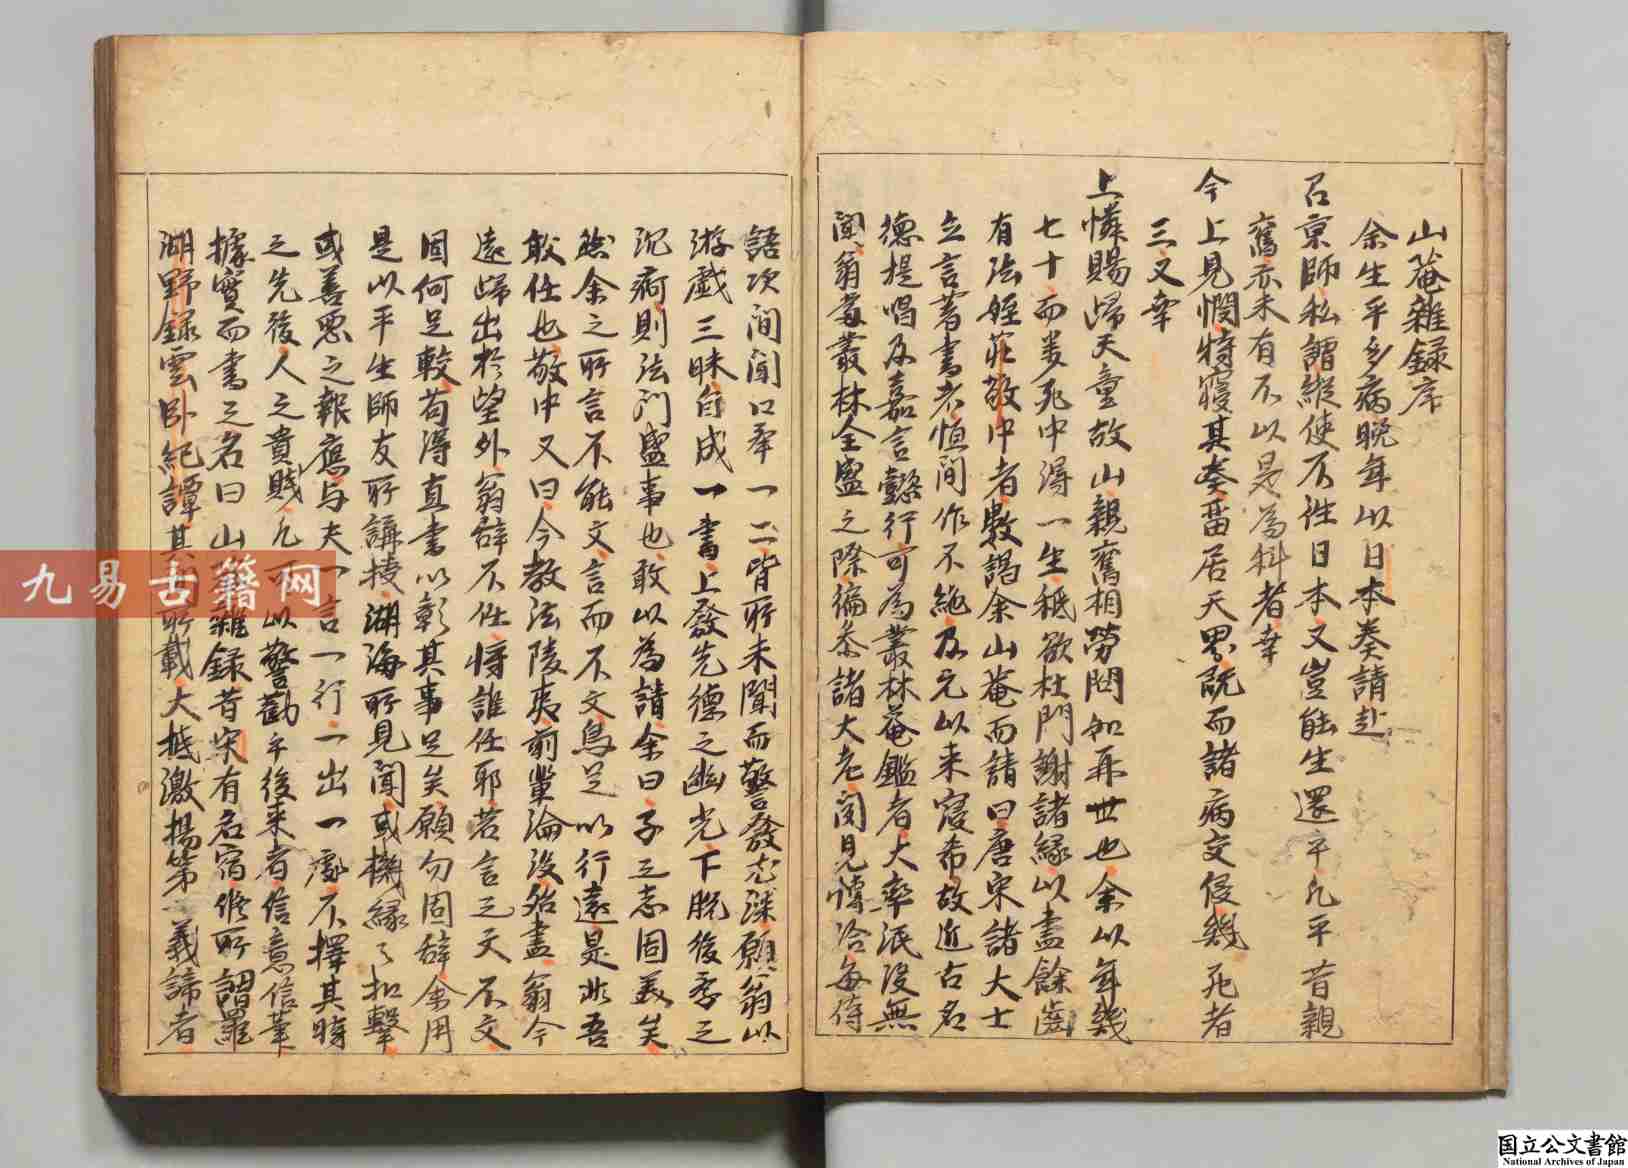 山菴雜録序
余生平多病晩年以日本奏請赴
召京師私謂縱使不往日本又豈能生還乎凡平昔親
舊亦未有不以是為料者幸
今上見憫特寢其奏留居天界說而諸病交侵幾死者
三又幸
上憐賜歸天童故山親舊相勞問如再世也余以年幾
七十而婁死中得一生秪欲杜門謝諸緣以盡餘齒
有法姪莊敬中者數謁余山菴而請曰唐宋諸大士
立言著書者恒間作不絶及元以来寖希故近古名
德提唱及嘉言懿行可為叢林蓍鑑者大率泯没無
聞翁當叢林全盛之際徧叅諸大老聞見博洽每侍
語次間聞口舉一二皆所未聞而警發尤深願翁以
游戲三昧自成一書上發先德之幽光下脱後季之
沉痾則法門盛事也敢以為請余曰子之志固美矣
然余之所言不能文言而不文烏足以行遠是非吾
敢任也敬中又曰今教法陵夷前輩淪没殆盡翁今
遠歸出於望外翁辭不任將誰任耶若言之文不文
固何足較茍得直書以彰其事足矣願勿固辭余用
是以平生師友所講授湖海所見聞或機緣之扣擊
或善惡之報應与夫一言一行一出一處不擇其時
之先後人之貴賤凡可以警勸乎後来者信意信筆
據實而書之名曰山菴雜録昔宋有名宿修所謂羅
湖野録雲卧紀譚其間所載大抵激揚第一義諦者
九易古籍网
国立公文書館
National Archives of Japan